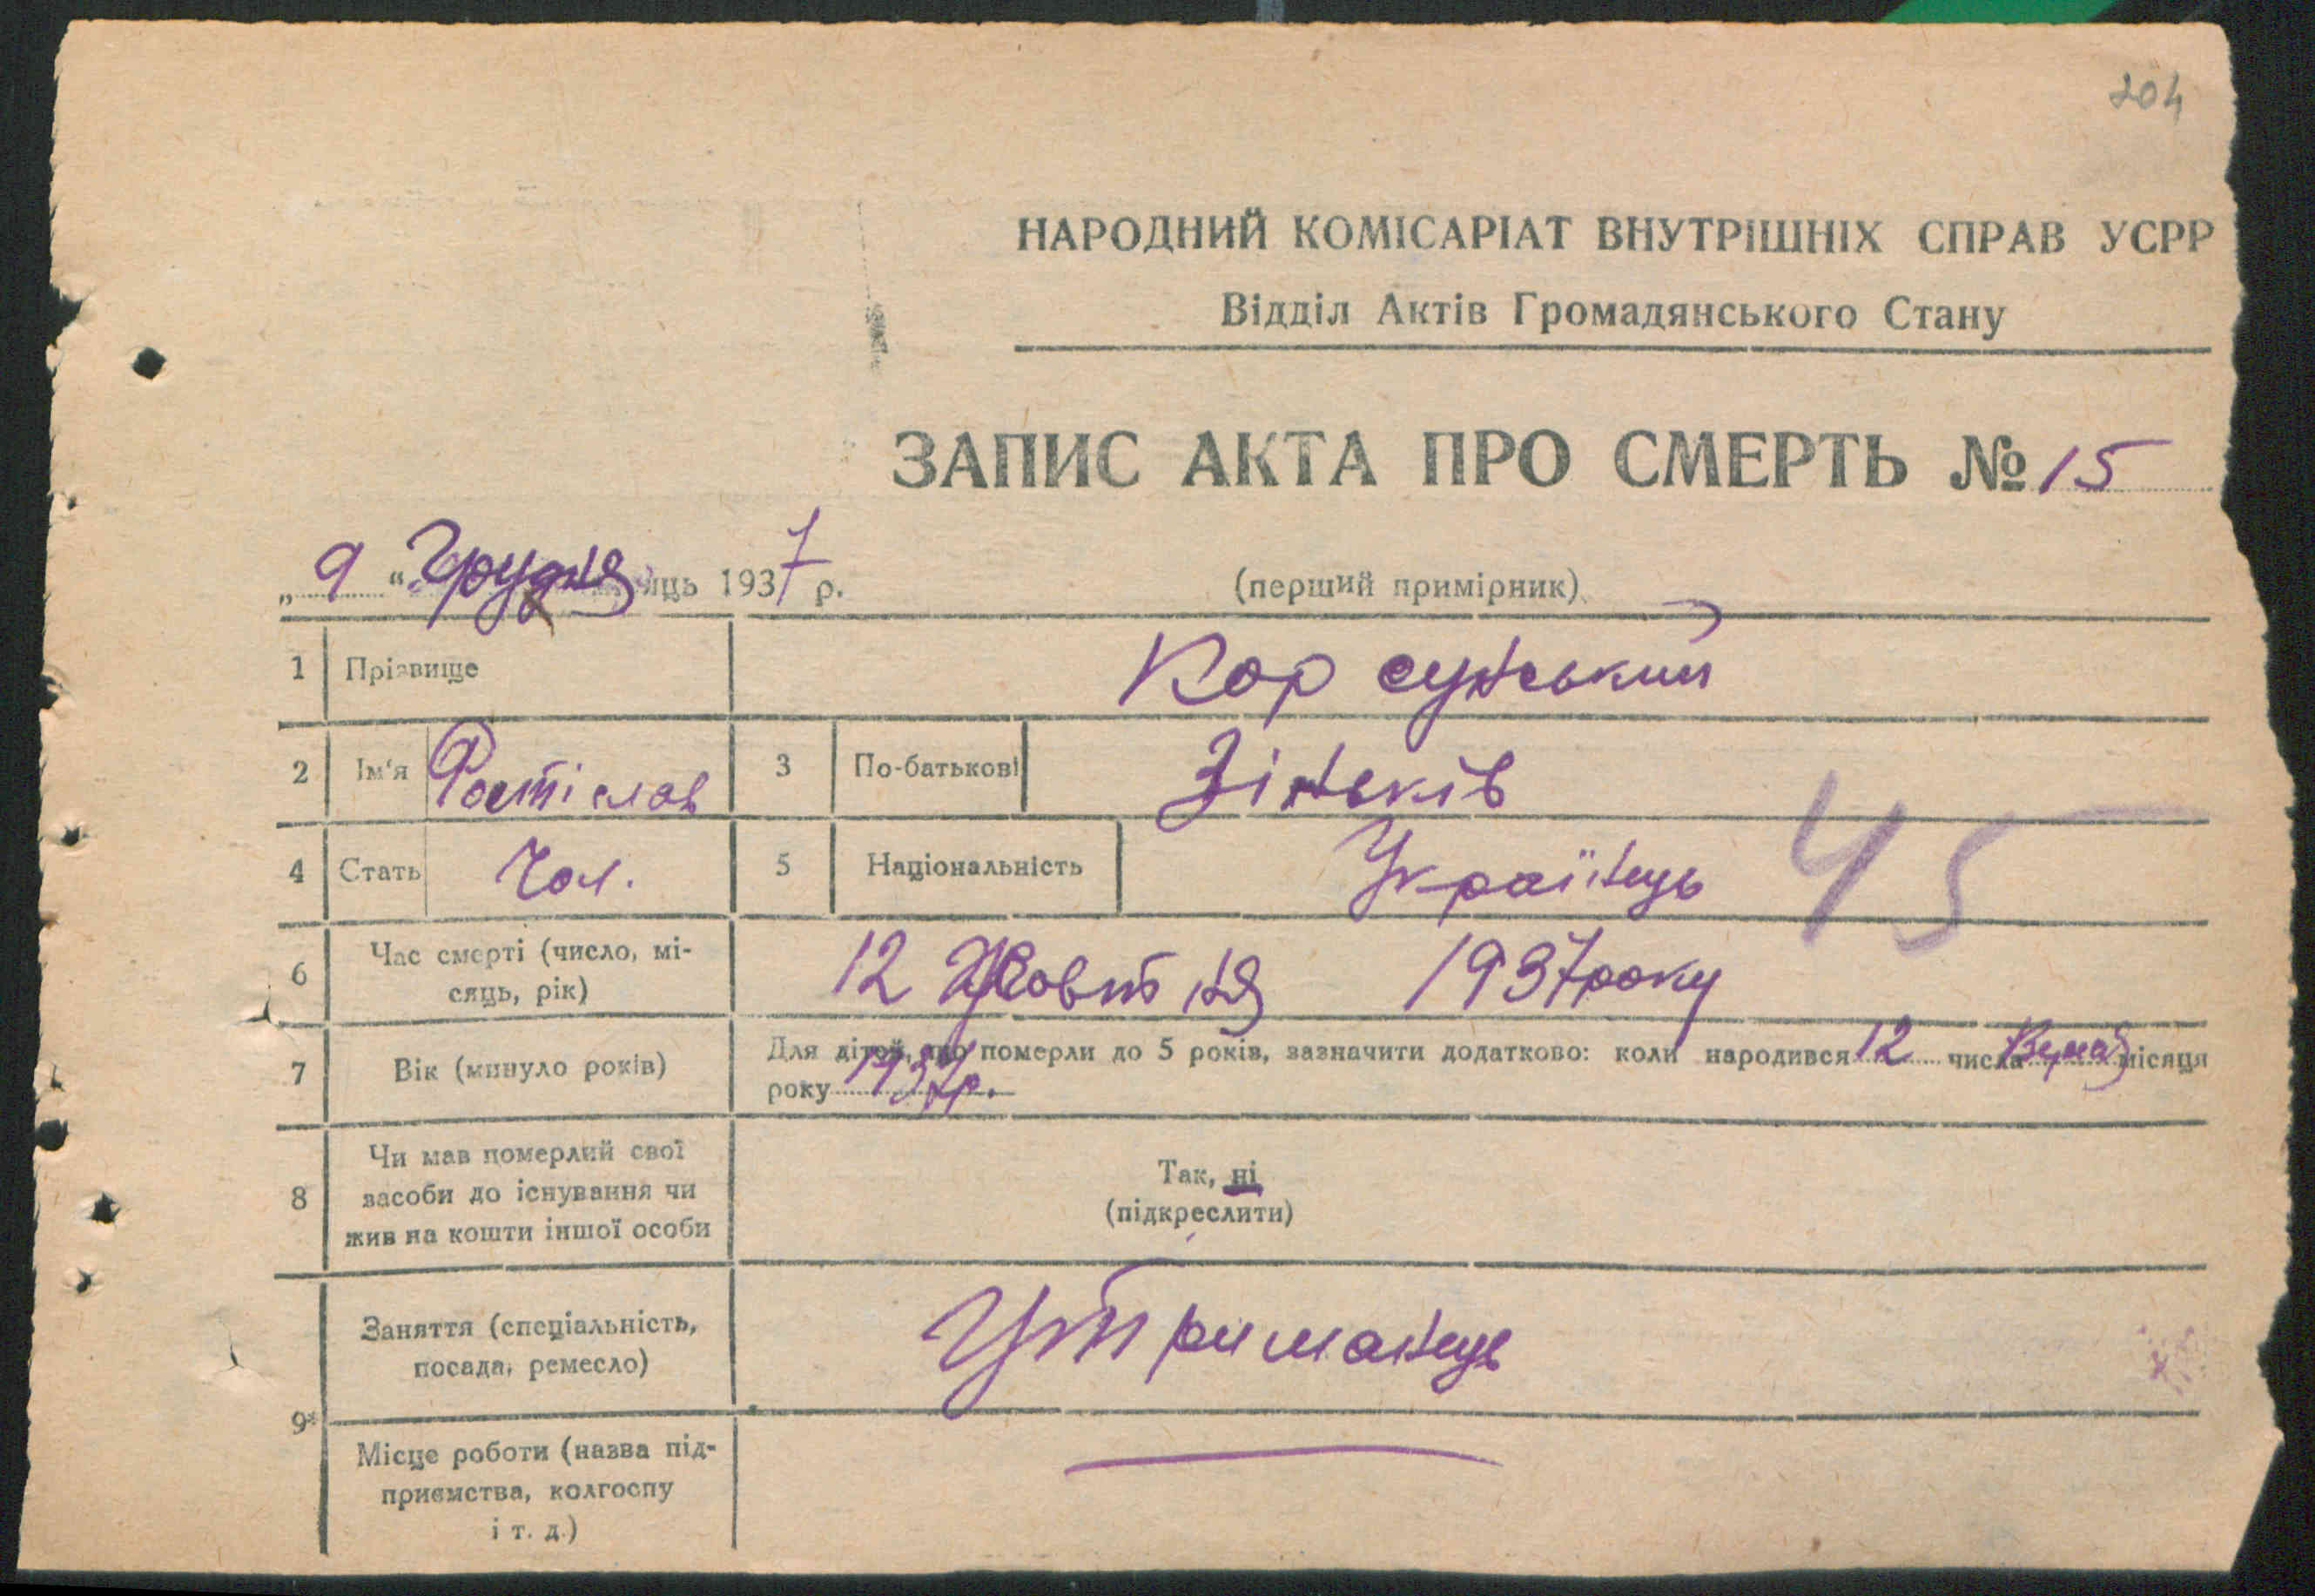 204
НАРОДНИЙ КОМІСАРІАТ ВНУТРІШНІХ СПРАВ УСРР
Відділ Актів Громадянського Стану
ЗАПИС АКТА ПРО СМЕРТЬ № 15
„ 9 “ Грудня місяць 1937 р.
(перший примірник)
1 Прізвище Корсунський
2 Ім'я Ростіслав 3 По-батькові Зіньків
4 Стать Чол. 5 Національність Українець 45
6 Час смерті (число, мі-
сяць, рік) 12 Жовтня 1937 року
7 Вік (минуло років) Для дітей, що померли до 5 років, зазначити додатково: коли народився 12 числа місяця
року 1937р.
8 Чи мав померлий свої
засоби до існування чи
жив на кошти іншої особи
Так, ні
(підкреслити)
9* Заняття (спеціальність,
посада, ремесло) Утриманець
Місце роботи (назва під-
приємства, колгоспу
і т. д.)